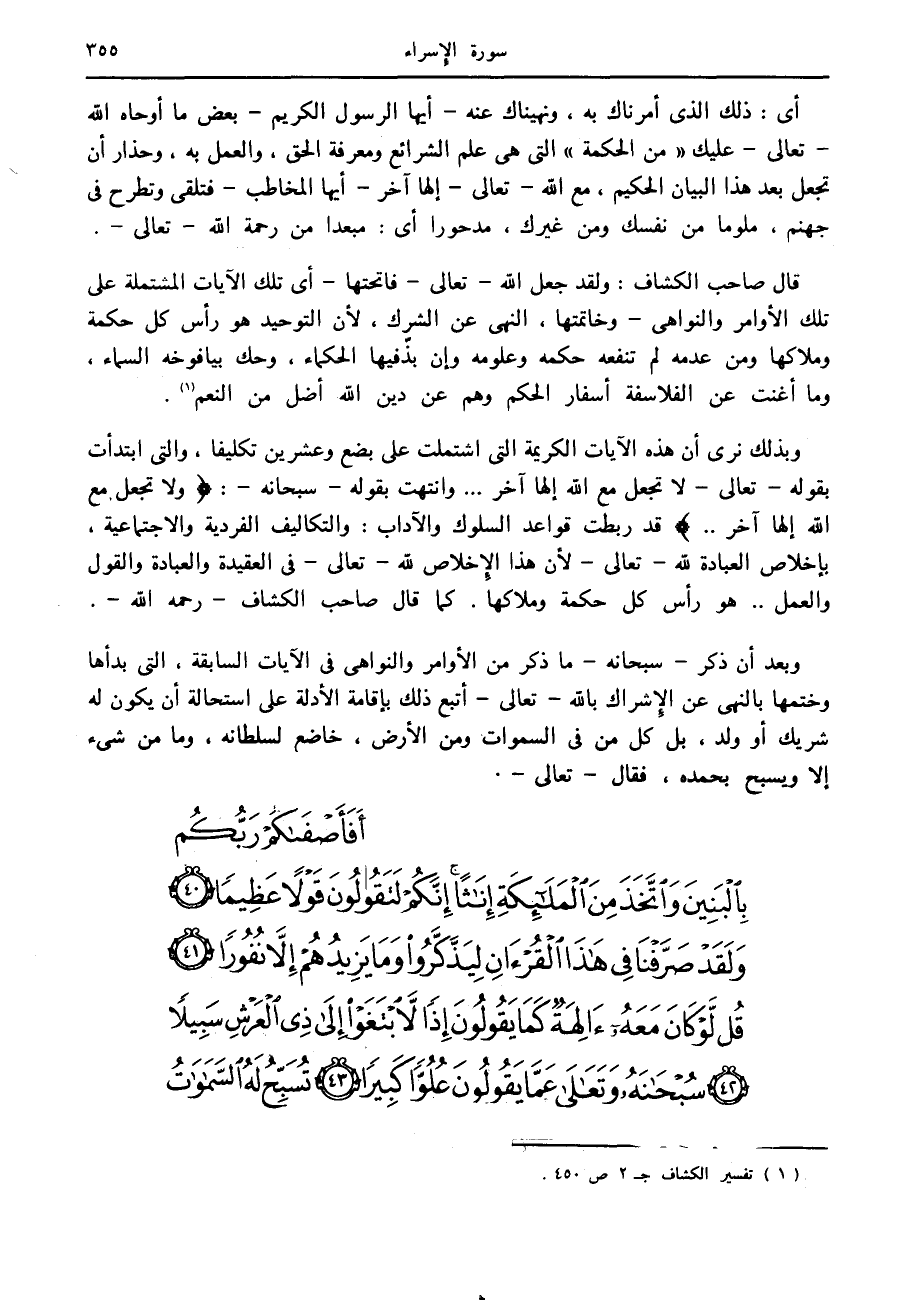 سورة الإسراء ٣٥٥
أى : ذلك الذى أمرناك به ، ونهيناك عنه – أيها الرسول الكريم – بعض ما أوحاه الله
– تعالى – عليك « من الحكمة » التى هى علم الشرائع ومعرفة الحق ، والعمل به ، وحذار أن
تجعل بعد هذا البيان الحكيم ، مع الله – تعالى – إلها آخر – أيها المخاطب – فتلقى وتطرح فى
جهنم ، ملوما من نفسك ومن غيرك ، مدحورا أى : مبعدا من رحمة الله – تعالى – .
قال صاحب الكشاف : ولقد جعل الله – تعالى – فاتحتها – أى تلك الآيات المشتملة على
تلك الأوامر والنواهى – وخاتمتها ، النهى عن الشرك ، لأن التوحيد هو رأس كل حكمة
وملاكها ومن عدمه لم تنفعه حكمه وعلومه وإن بذّفيها الحكماء ، وحك بيافوخه السماء ،
وما أغنت عن الفلاسفة أسفار الحكم وهم عن دين الله أضل من النعم(١) .
وبذلك نرى أن هذه الآيات الكريمة التى اشتملت على بضع وعشرين تكليفا ، والتى ابتدأت
بقوله – تعالى – لا تجعل مع الله إلها آخر ... وانتهت بقوله – سبحانه – : ﴿ ولا تجعل مع
الله إلها آخر .. ﴾ قد ربطت قواعد السلوك والآداب : والتكاليف الفردية والاجتماعية ،
بإخلاص العبادة لله – تعالى – لأن هذا الإخلاص لله – تعالى – فى العقيدة والعبادة والقول
والعمل .. هو رأس كل حكمة وملاكها . كما قال صاحب الكشاف – رحمه الله – .
وبعد أن ذكر – سبحانه – ما ذكر من الأوامر والنواهى فى الآيات السابقة ، التى بدأها
وختمها بالنهى عن الإشراك بالله – تعالى – أتبع ذلك بإقامة الأدلة على استحالة أن يكون له
شريك أو ولد ، بل كل من فى السموات ومن الأرض ، خاضع لسلطانه ، وما من شىء
إلا ويسبح بحمده ، فقال – تعالى – .
أَفَأَصْفَىٰكُمْ رَبُّكُم
بِٱلْبَنِينَ وَٱتَّخَذَ مِنَ ٱلْمَلَٰٓئِكَةِ إِنَٰثًا ۚ إِنَّكُمْ لَتَقُولُونَ قَوْلًا عَظِيمًا ﴿٤٠﴾
وَلَقَدْ صَرَّفْنَا فِى هَٰذَا ٱلْقُرْءَانِ لِيَذَّكَّرُوا۟ وَمَا يَزِيدُهُمْ إِلَّا نُفُورًا ﴿٤١﴾
قُل لَّوْ كَانَ مَعَهُۥٓ ءَالِهَةٌ كَمَا يَقُولُونَ إِذًا لَّٱبْتَغَوْا۟ إِلَىٰ ذِى ٱلْعَرْشِ سَبِيلًا
﴿٤٢﴾ سُبْحَٰنَهُۥ وَتَعَٰلَىٰ عَمَّا يَقُولُونَ عُلُوًّا كَبِيرًا ﴿٤٣﴾ تُسَبِّحُ لَهُ ٱلسَّمَٰوَٰتُ
( ١ ) تفسير الكشاف جـ ٢ ص ٤٥٠ .